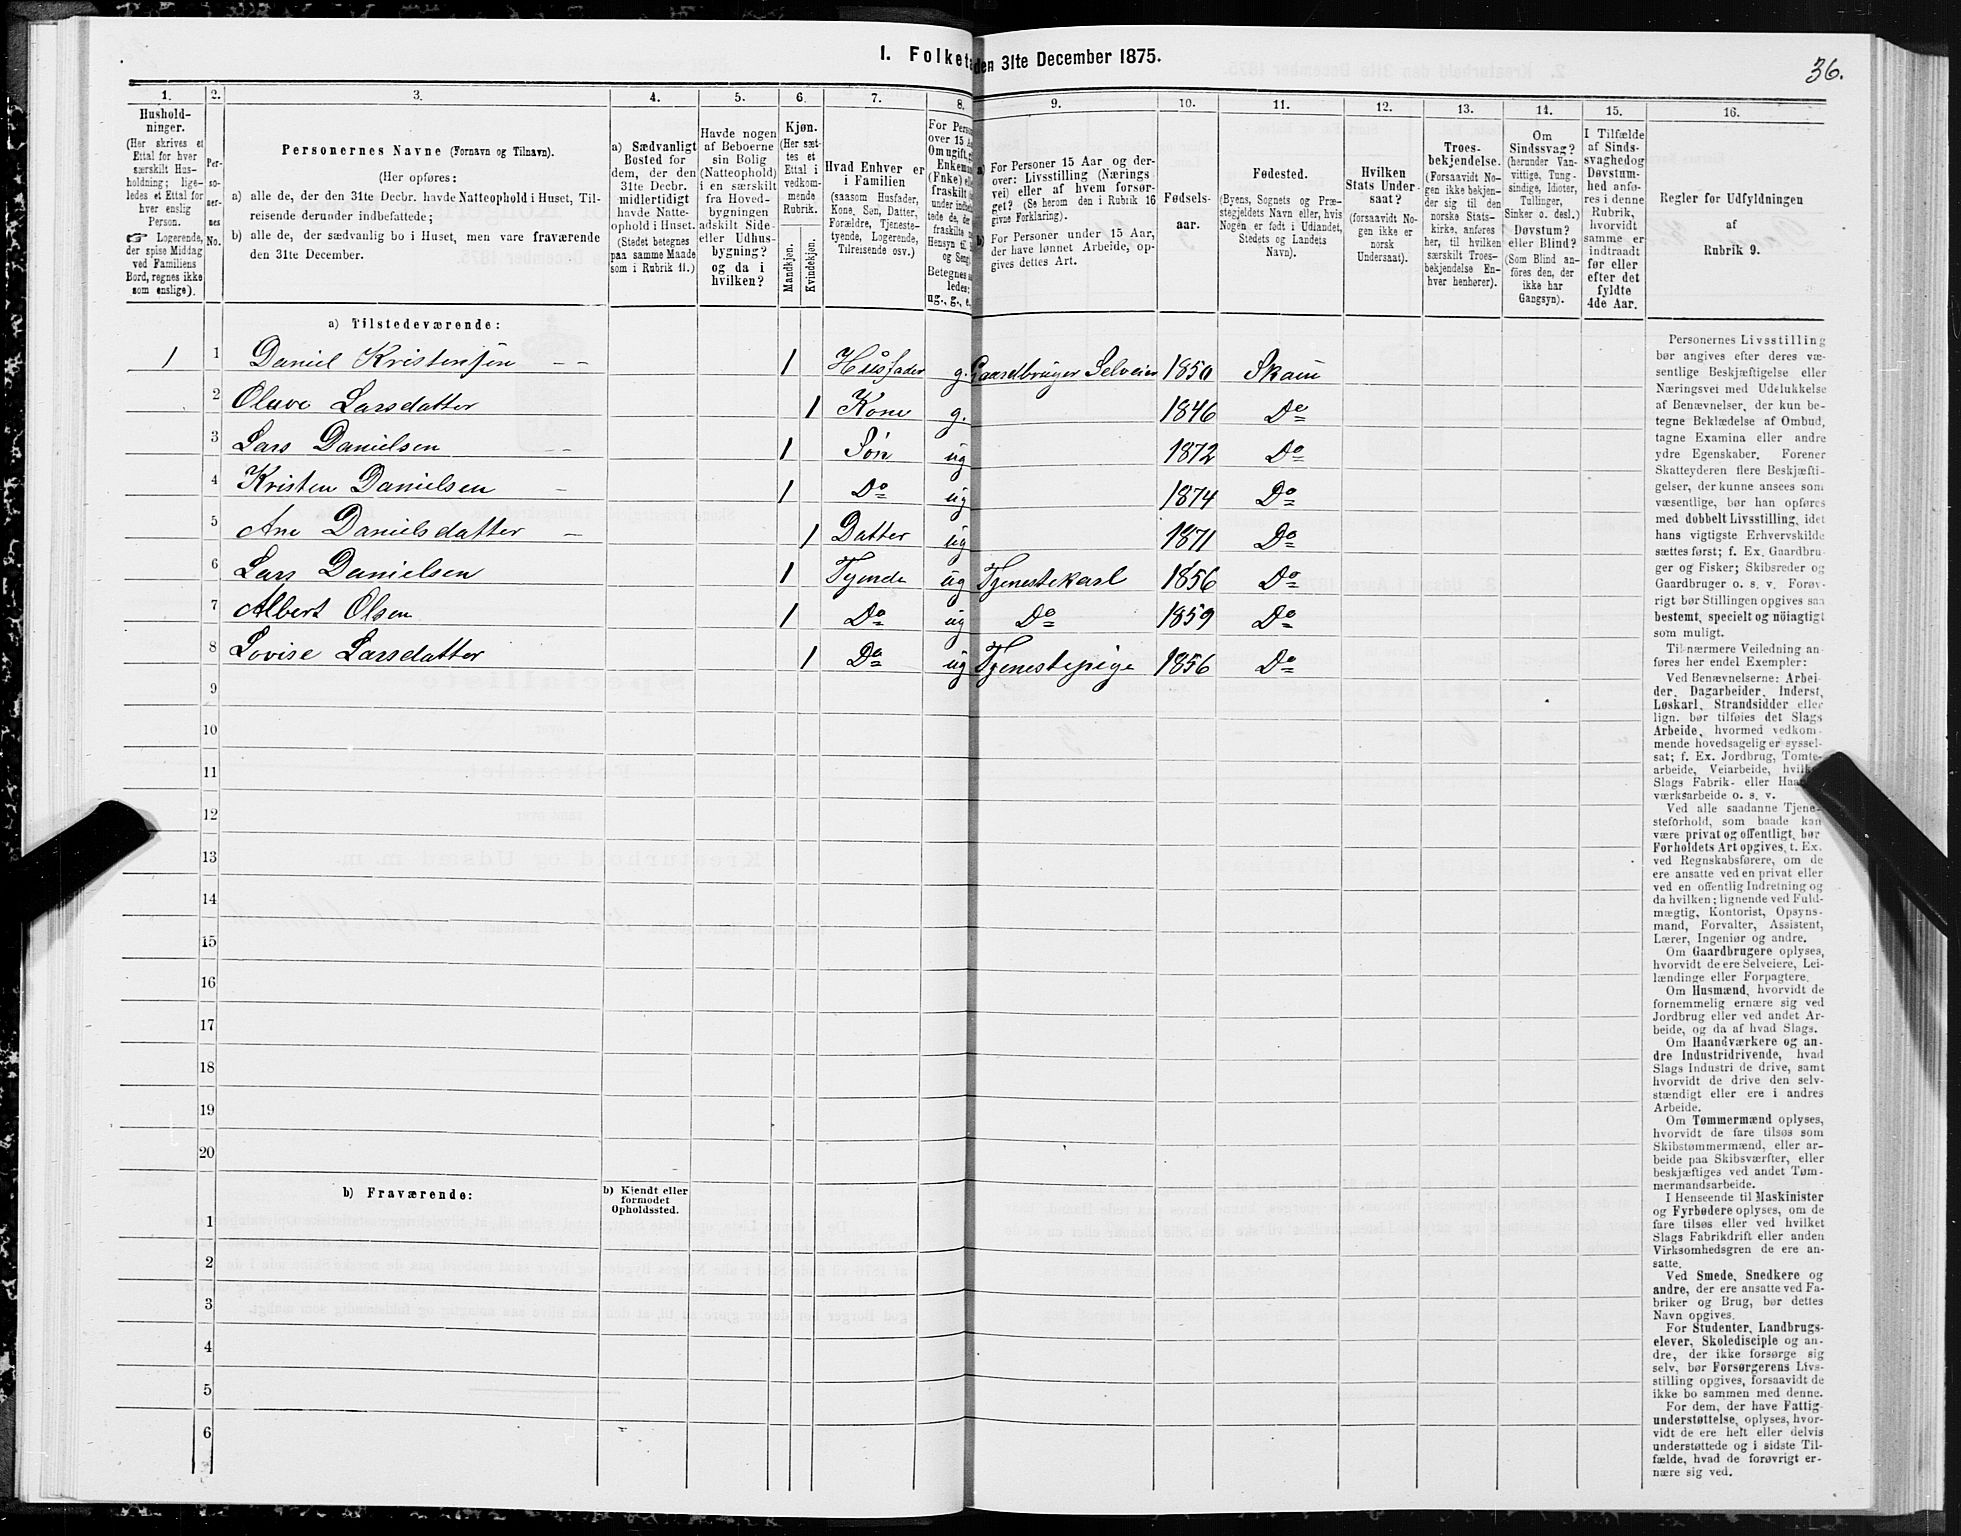 1. Folketæ den 31te December 1875.
36.
1.
2.
3.
4.
5.
6.
7.
8.
9.
10.
11.
12.
13.
14.
15.
16.
Hushold-
ninger.
(Her skrives et
Ettal for hver
særskilt Hus-
holdning; lige-
ledes et Ettal for
hver enslig
Person.
☞ Logerende,
der spise Middag
ved Familiens
Bord, regnes ikke
som enslige).
Per-
so-
ner-
nes
No.
Personernes Navne (Fornavn og Tilnavn).
(Her opføres:
a) alle de, der den 31te Decbr. havde Natteophold i Huset, Til-
reisende derunder indbefattede;
b) alle de, der sædvanlig bo i Huset, men vare fraværende
den 31te December.
a) Sædvanligt
Bosted for
dem, der den
31te Decbr.
midlertidigt
havde Natte-
ophold i Huset.
(Stedet betegnes
paa samme Maade
som i Rubrik 11.)
Havde nogen
af Beboerne
sin Bolig
(Natteophold)
i en særskilt
fra Hoved-
bygningen
adskilt Side-
eller Udhus-
bygning?
og da i
hvilken?
Kjøn.
(Her sæt-
tes et
Ettal i
vedkom-
mende
Rubrik.
Mandkjøn.
Kvindekjøn.
Hvad Enhver er
i Familien
(saasom Husfader,
Kone, Søn, Datter,
Forældre, Tjeneste-
tyende, Logerende,
Tilreisende osv.)
For Perso
over 15 A
Om ugift, g
Enkem
(Enke) ell
fraskilt
under indb
tede de, de
fraskilte
Hensyn til
og Seng.
Betegnes s
ledes:
ug., g., e.
a) For Personer 15 Aar og der-
over: Livsstilling (Nærings-
vei) eller af hvem forsør-
get? (Se herom den i Rubrik 16
givne Forklaring).
b) For Personer under 15 Aar,
der have lønnet Arbeide, op-
gives dettes Art.
Fødsels-
aar.
Fødested.
(Byens, Sognets og Præ-
stegjeldets Navn eller, hvis
Nogen er født i Udlandet,
Stedets og Landets
Navn).
Hvilken
Stats Under-
saat?
(forsaavidt No-
gen ikke er
norsk
Undersaat).
Troes-
bekjendelse.
(Forsaavidt No-
gen ikke bekjen-
der sig til den
norske Stats-
kirke, anføres
her, til hvilken
særskilt Troes-
bekjendelse En-
hver henhører).
Om
Sindssvag?
(herunder Van-
vittige, Tung-
sindige, Idioter,
Tullinger,
Sinker o. desl.)
Døvstum?
eller Blind?
(Som Blind an-
føres den, der
ikke har
Gangsyn).
I Tilfælde
af Sinds-
svaghed og
Døvstum-
hed anfø-
res i denne
Rubrik,
hvorvidt
samme er
indtraadt
før eller
efter det
fyldte
4de Aar.
Regler for Udfyldningen
af
Rubrik 9.
a) Tilstedeværende:
1 1 Daniel Kristensen 1 Husfader g. Gaardbruger Selveier 1850 Skaui
2 Oluve Larsdatter 1 Kone g. 1846 Do
3 Lars Danielsen 1 Søn ug 1872 Do
4 Kristen Danielsen 1 Do ug 1874 Do
5 Ane Danielsdatter 1 Datter ug 1871 Do
6 Lars Danielsen 1 Tyende ug Tjenestekarl 1856 Do
7 Albert Olsen 1 Do ug Do 1859 Do
8 Lovise Larsdatter 1 Do ug Tjenestepige 1856 Do
9
10
11
12
13
14
15
16
17
18
19
20
b) Fraværende:
b) Kjendt eller
formodet
Opholdssted.
1
2
3
4
5
6
Personernes Livsstilling
bør angives efter deres væ-
sentlige Beskjæftigelse eller
Næringsvei med Udelukkelse
af Benævnelser, der kun be-
tegne Beklædelse af Ombud,
tagne Examina eller andre
ydre Egenskaber. Forener
Skatteyderen flere Beskjæfti-
gelser, der kunne ansees som
væsentlige, bør han opføres
med dobbelt Livsstilling, idet
hans vigtigste Erhvervskilde
sættes først; f. Ex. Gaardbru-
ger og Fisker; Skibsreder og
Gaardbruger o. s. v. Forøv-
rigt bør Stillingen opgives saa
bestemt, specielt og nöiagtigt
som muligt.
Til nærmere Veiledning an-
føres her endel Exempler:
Ved Benævnelserne: Arbei-
der, Dagarbeider, Inderst,
Løskarl, Strandsidder eller
lign. bør tilføies det Slags
Arbeide, hvormed vedkom-
mende hovedsagelig er syssel-
sat; f. Ex. Jordbrug, Tomte-
arbeide, Veiarbeide, hvilket
Slags Fabrik- eller Haand-
værksarbeide o. s. v.
Ved alle saadanne Tjene-
steforhold, som baade kan
være privat og offentligt, bør
Forholdets Art opgives, t. Ex.
ved Regnskabsførere, om de
ere ansatte ved en privat eller
ved en offentlig Indretning og
da hvilken; lignende ved Fuld-
mægtig, Kontorist, Opsyns-
mand, Forvalter, Assistent,
Lærer, Ingeniør og andre.
Om Gaardbrugere oplyses,
hvorvidt de ere Selveiere, Lei-
lændinge eller Forpagtere.
Om Husmænd, hvorvidt de
fornemmelig ernære sig ved
Jordbrug eller ved andet Ar-
beide, og da af hvad Slags.
Om Haandværkere og an-
dre Industridrivende, hvad
Slags Industri de drive, samt
hvorvidt de drive den selv-
stændigt eller ere i andres
Arbeide.
Om Tømmermænd oplyses,
hvorvidt de fare tilsøs som
Skibstømmermænd, eller ar-
beide paa Skibsværfter, eller
beskjæftiges ved andet Tøm-
mermandsarbeide.
I Henseende til Maskinister
og Fyrbødere oplyses, om de
fare tilsøs eller ved hvilket
Slags Fabrikdrift eller anden
Virksomhedsgren de ere an-
satte.
Ved Smede, Snedkere og
andre, der ere ansatte ved Fa-
briker og Brug, bør dettes
Navn opgives.
For Studenter, Landbrugs-
elever, Skoledisciple og an-
dre, der ikke forsørge sig
selv, bør Forsørgerens Livs-
stilling opgives, forsaavidt de
ikke bo sammen med denne.
For dem, der have Fattig-
understøttelse, oplyses, hvor-
vidt de ere helt eller delvis
understøttede og i sidste Til-
fælde, hvad de forøvrigt er-
nære sig ved.